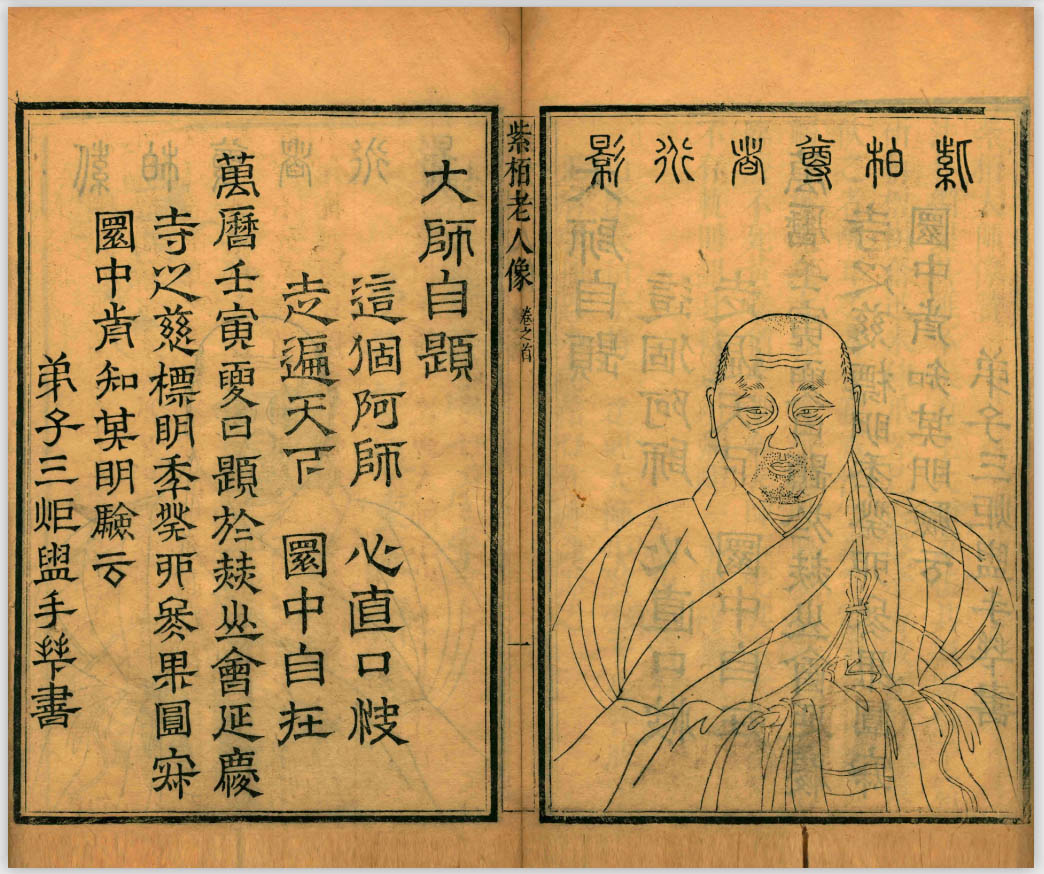 紫柏尊者影
紫柏老人像 卷之首 一
大師自題
這個阿師 心直口快
走遍天下 圜中自在
萬曆壬寅夏日題於燕山會延慶
寺之慈標明年癸卯冬果圓寂
圜中肯知其明驗云
弟子三炬盥手拜書